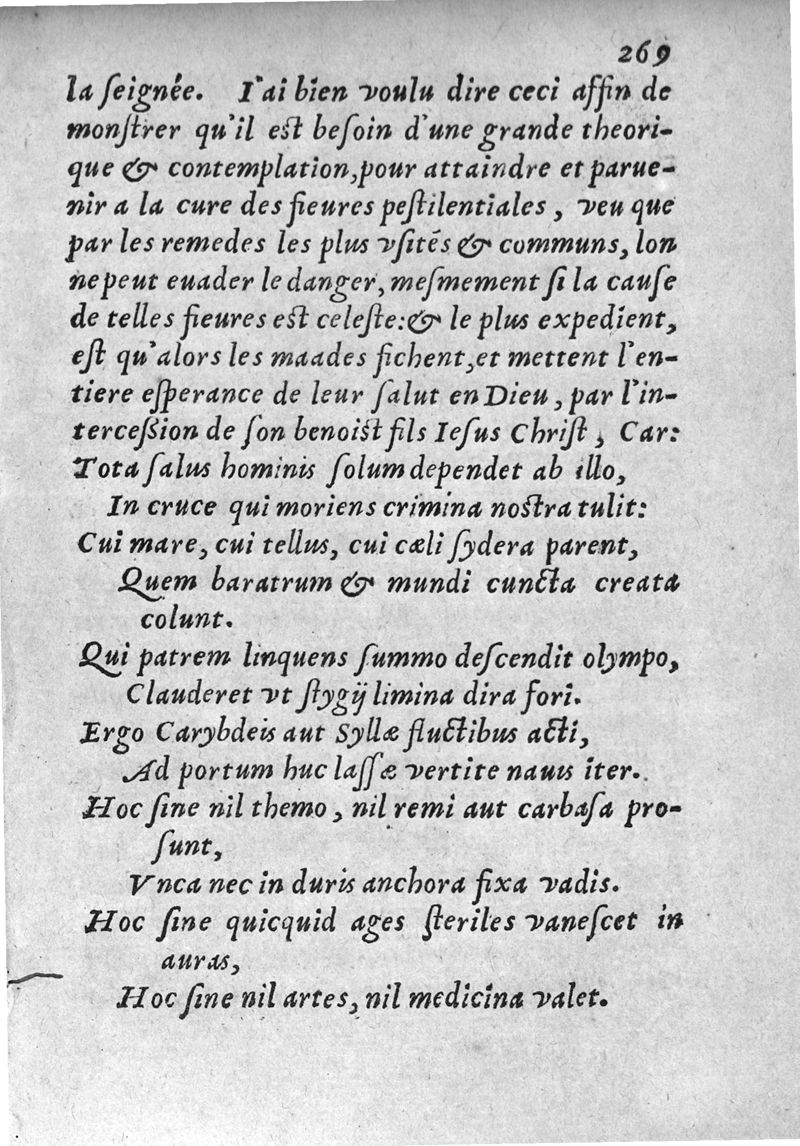 269
la ſeignée. I'ai bien voulu dire ceci affin de
monſtrer qu'il eſt beſoin d'une grande theori-
que & contemplation,pour attaindre et parue-
nir a la cure des fieures peſtilentiales, veu que
par les remedes les plus vſités & communs, lon
ne peut euader le danger, meſmement ſi la cauſe
de telles fieures eſt celeſte:& le plus expedient,
eſt qu'alors les maades fichent,et mettent l'en-
tiere eſperance de leur ſalut en Dieu, par l'in-
terceſsion de ſon benoiſt fils Ieſus Chriſt, Car:
Tota ſalus hominis ſolum dependet ab illo,
In cruce qui moriens crimina noſtra tulit:
Cui mare, cui tellus, cui cæli ſydera parent,
Quem baratrum & mundi cuncta creata
colunt.
Qui patrem linquens ſummo deſcendit olympo,
Clauderet vt ſtygij limina dira fori.
Ergo Carybdeis aut Syllæ fluctibus acti,
Ad portum huc laſſæ vertite nauis iter.
Hoc ſine nil themo, nil remi aut carbaſa pro-
ſunt,
Vnca nec in duris anchora fixa vadis.
Hoc ſine quicquid ages ſteriles vaneſcet in
auras,
Hoc ſine nil artes, nil medicina valet.